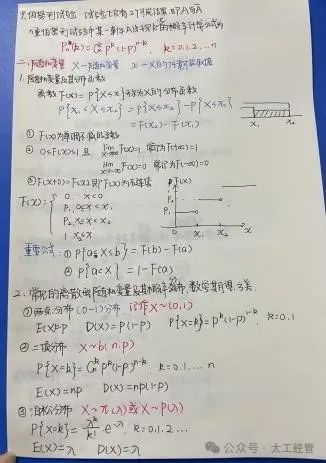 贝努利试验：试验E只有2个可能结果，即A与Ā
n重伯努利试验中某一事件A恰好发生k次的概率计算公式为
Pₙ(k)=Cₙᵏ pᵏ(1-p)ⁿ⁻ᵏ, k=0.1.2...n
二、随机变量 X-随机变量 x-X的所有可能取值
1.随机变量及其分布函数
函数F(x)=P{X≤x}称为X的分布函数
P{x₁<X≤x₂}=P{X≤x₂}-P{X≤x₁}
=F(x₂)-F(x₁)
x₁ x₂ X
① F(x)为单调不减的函数
② 0≤F(x)≤1 且 lim F(x)=1, 常记为F(+∞)=1
x→∞
lim F(x)=0 常记为F(-∞)=0
x→-∞
③ F(x+0)=F(x),即F(x)为右连续
F(x)={ 0, x<0
P₁, 0≤x<x₁
P₂, x₁≤x<x₂
1 x₂≤x
F(x)
x₁ x₂ x
重要公式：① P{a<X≤b}=F(b)-F(a)
② P{a<X}=1-F(a)
2、常见的离散型随机变量及其概率分布,数学期望,方差
①两点分布(0-1)分布 记作X~(0,1)
E(X)=p D(X)=p(1-p) P{X=k}=pᵏ(1-p)¹⁻ᵏ, k=0.1
②二项分布 X~b(n.p)
P{X=k}=Cₙᵏ pᵏ(1-p)ⁿ⁻ᵏ, k=0.1....n
E(X)=np D(X)=np(1-p)
③泊松分布 X~π(λ)或X~P(λ)
P{X=k}=λᵏ/k! e^-λ, k=0.1.2...
E(X)=λ D(X)=λ
公众号·太工经管